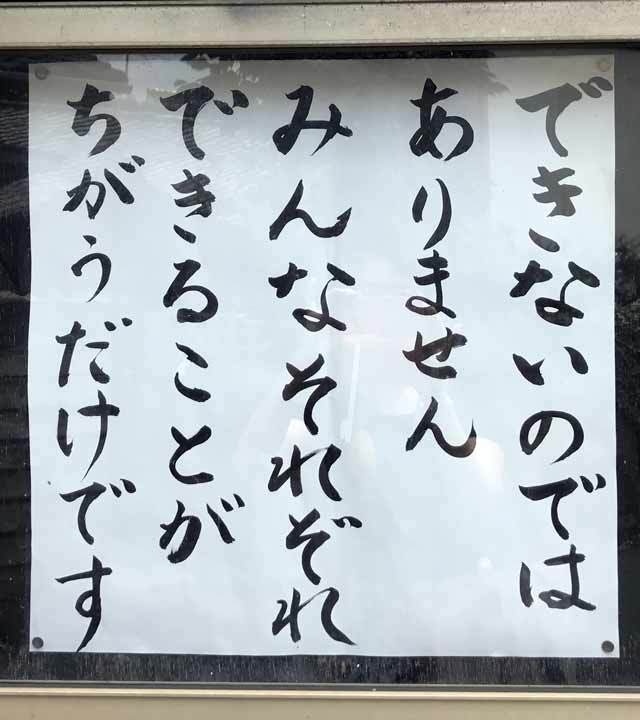 できないのでは
ありません
みんなそれぞれ
できることが
ちがうだけです